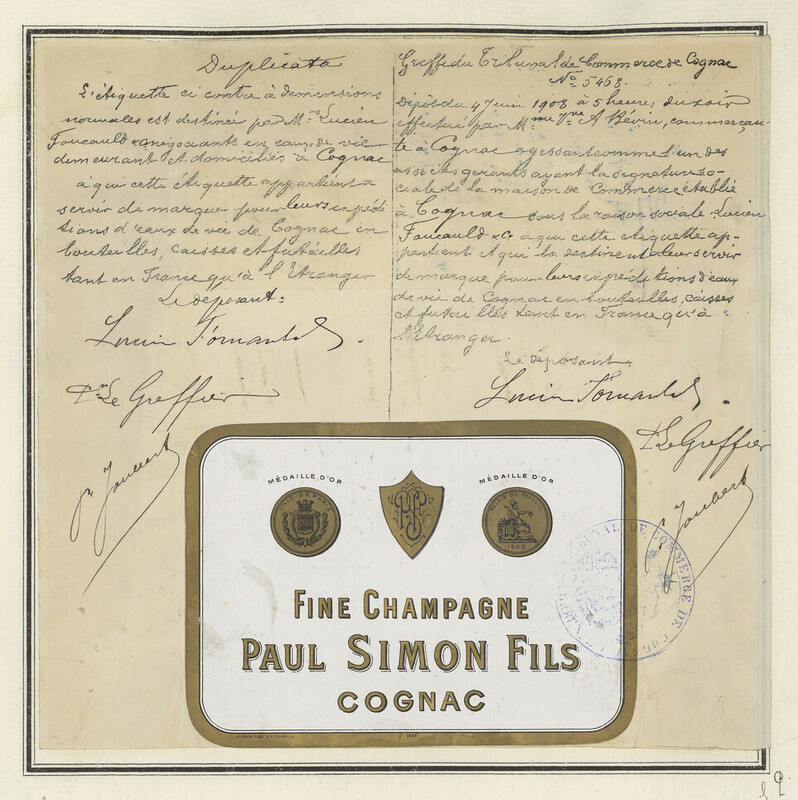 Duplicata
L'étiquette ci contre à dimensions
normales est destinée par Mrs Lucien
Foucauld & Co négociants en eaux de vie
demeurant et domiciliés à Cognac
à qui cette étiquette appartient à
servir de marque pour leurs expédi
tions d'eaux de vie de Cognac en
bouteilles, caisses et futailles
tant en France qu'à l'Etranger
Le déposant:
Lucien Foucauld
Pr Le Greffier
P. Joubert
Greffe du Tribunal de Commerce de Cognac
No 5468.
Dépôt du 4 Juin 1908 à 5 heures du soir
effectué par Mme Vve A Bévin, commerçan
te à Cognac agissant comme l'un des
associés gérants ayant la signature so-
ciale de la maison de Commerce établie
à Cognac sous la raison sociale Lucien
Foucauld & Co à qui cette étiquette ap-
partient et qui la destine à leur servir
de marque pour leurs expéditions d'eaux
de vie de Cognac en bouteilles, caisses
et futailles tant en France qu'à
l'Etranger.
Le déposant
Lucien Foucauld
Pr Le Greffier
P. Joubert
MÉDAILLE D'OR
MÉDAILLE D'OR
1900
FINE CHAMPAGNE
PAUL SIMON FILS
COGNAC
TRIBUNAL DE COMMERCE DE COGNAC